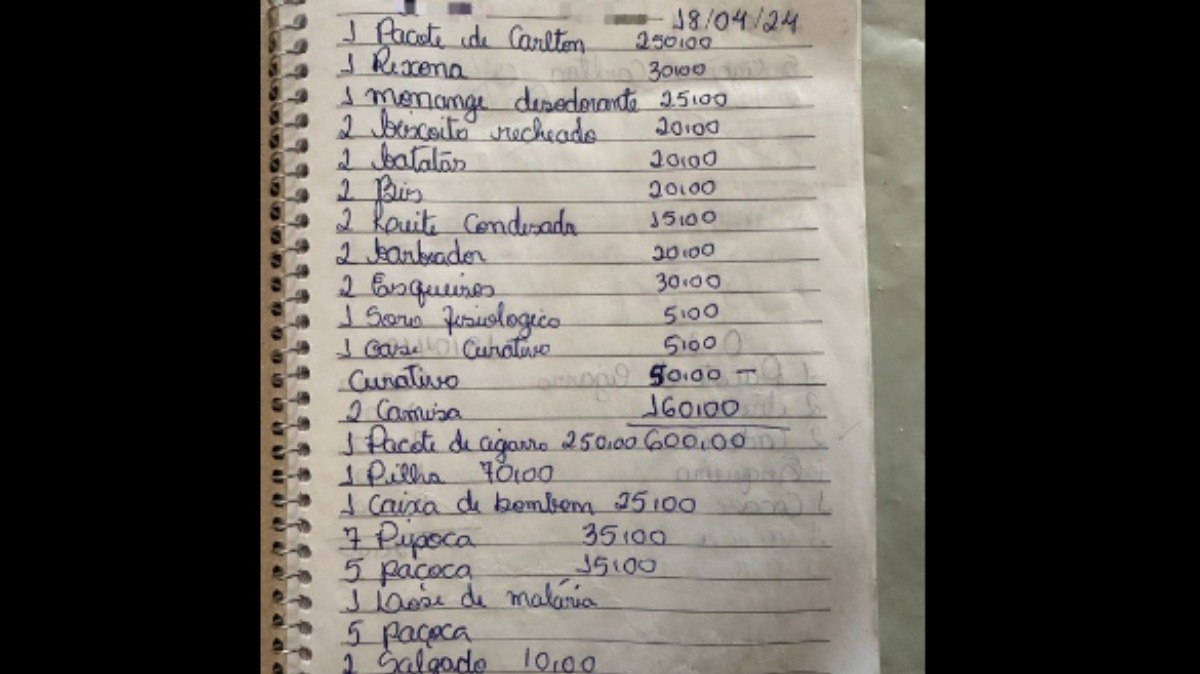 18/04/24
1 Pacote de Carlton 250,00
1 Rexona 30,00
1 monange desodorante 25,00
2 biscoito recheado 20,00
2 batatas 20,00
2 Bis 20,00
2 Leite Condesada 15,00
2 barbeador 20,00
2 Esqueiros 30,00
1 Soro fisiologico 5,00
1 Gase Curativo 5,00
Curativo 50,00 -
2 Camisa 160,00
1 Pacote de cigarro 250,00 600,00
1 Pilha 70,00
1 Caixa de bombom 25,00
7 Pipoca 35,00
5 paçoca 15,00
1 de malária
5 paçoca
2 Salgado 10,00